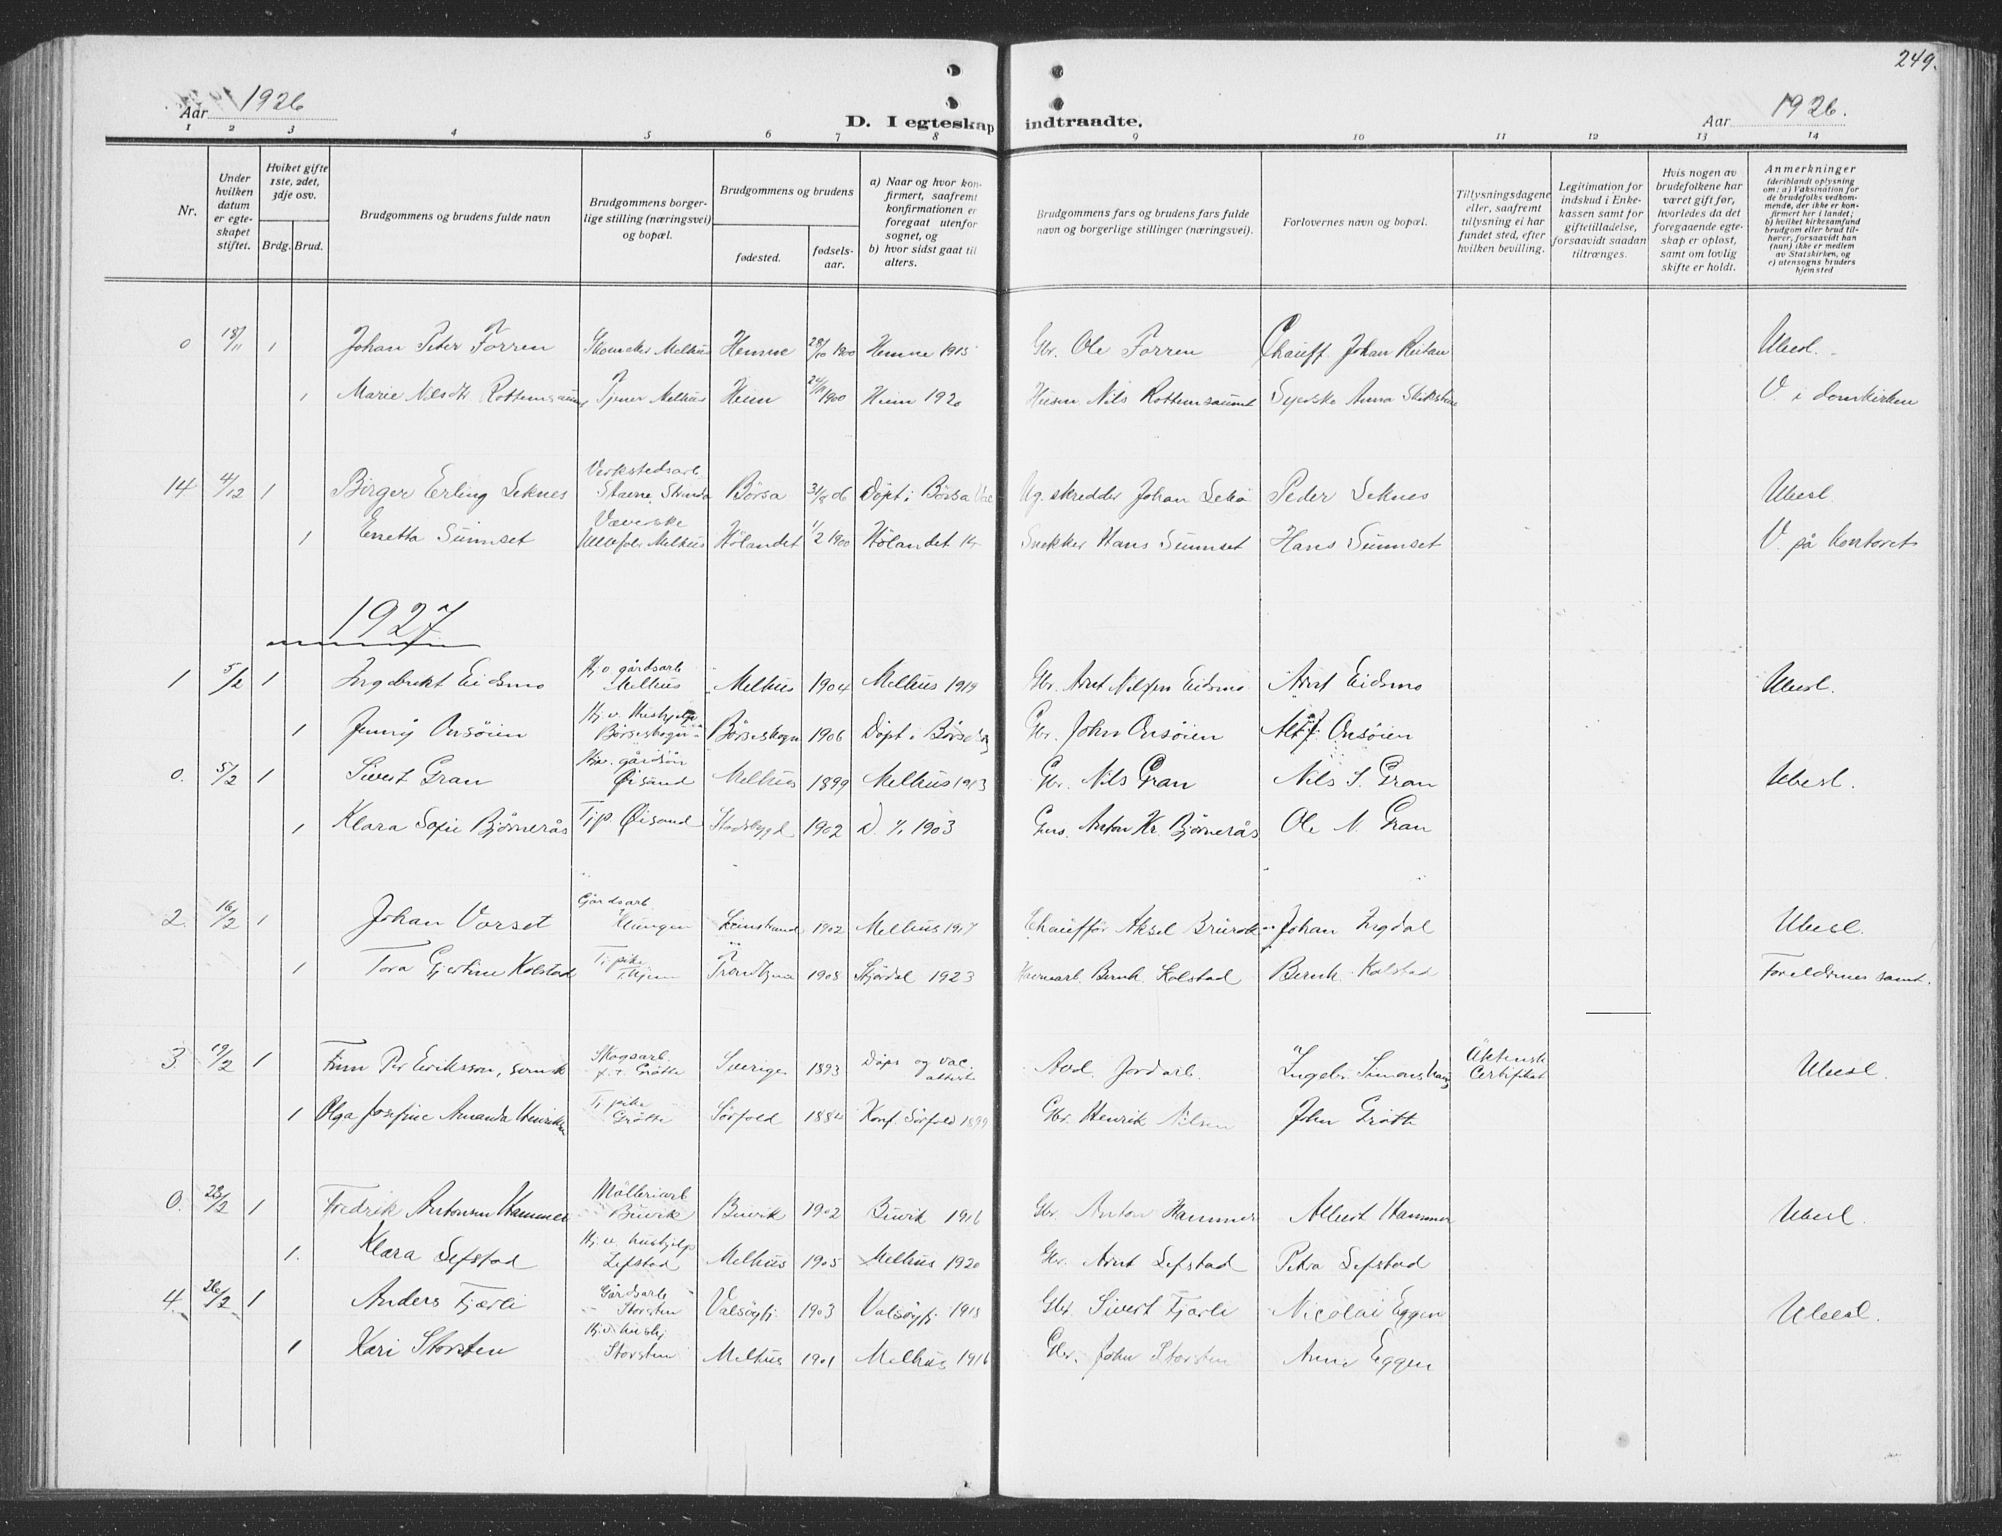 249.
Aar 1926
D. I egteskap indtraadte.
Aar 1926.
1 2 3 4 5 6 7 8 9 10 11 12 13 14
Nr.
Under hvilken datum er egteskapet stiftet.
Hvilket gifte 1ste, 2det, 3dje osv.
Brdg. Brud.
Brudgommens og brudens fulde navn
Brudgommens borgerlige stilling (næringsvei) og bopæl.
Brudgommens og brudens
fødested.
fødselsaar.
a) Naar og hvor konfirmert, saafremt konfirmationen er foregaat utenfor sognet, og
b) hvor sidst gaat til alters.
Brudgommens fars og brudens fars fulde navn og borgerlige stillinger (næringsvei).
Forlovernes navn og bopæl.
Tillysningsdagene eller, saafremt tillysning ei har fundet sted, efter hvilken bevilling.
Legitimation for indskud i Enkekassen samt for giftetilladelse, forsaavidt saadan tiltrænges.
Hvis nogen av brudefolkene har været gift før, hvorledes da det foregaaende egteskap er opløst, samt om lovlig skifte er holdt.
Anmerkninger
(deriblandt oplysning om: a) Vaksination for de brudefolks vedkommende, der ikke er konfirmert her i landet;
b) hvilket kirkesamfund brudgom eller brud tilhører, forsaavidt han (hun) ikke er medlem av Statskirken, og
c) utensogns bruders hjemsted
0 18/11 1 Johan Peter Forren Melhus Hemne 28/10 1900 Hemne 1915 Gbr. Ole Forren Chauff Johan Reitan Ubesl.
1 Marie Nilsdtr Rottemsaunet Tjener Melhus Heim 24/11 1900 Heim 1920 Husm. Nils Rottemsaunet Syerske Anna V. i domkirken
14 4/12 1 Birger Erling Leknes Verkstedsarb Strinda Børsa 31/8 06 Døpt i Børsa Vac skredder Johan Peder Leknes Ubesl
1 Enetta Sumset Væverske Melhus Hølandet 1/2 1900 Hølandet 14 Snekker Hans Sumset Hans Sumset V. på kontoret
1927
1 5/2 1 Ingebrikt Eidsmo Hj.v. gårdsarb Melhus Melhus 1904 Melhus 1919 Gbr. Arnt Nilsen Eidsmo Arnt Eidsmo Ubesl.
1 Jenny Onsøien Hj.v. Børseskogn Børseskogn 1906 Døpt i Gbr. John Onsøien Alf J. Onsøien
0. 5/2 1 Sivert Gran Øisand Melhus 1899 Melhus 1913 Gbr. Nils Gran Nils S. Gran Ubesl.
1 Klara Sofie Bjørnerås Tj.p. Øisand Stadsbygd 1902 D. 1/1 1903 Anton Kr. Bjørnerås Ole N. Gran
2. 16/2 1 Johan Vorset Gårdsarb Klungen Leinstrand 1902 Melhus 1917 Chauffør Aksel Johan Ubesl.
1 Tora Gjertine Kolstad Tj. pike Trondhjem 1905 Stjørdal 1923 Havnearb. Bernh. Kolstad Bernh. Kolstad Foreldrenes samt.
3 19/2 1 Finn Per Eriksson, svensk Skogsarb. Grøtte Sverige 1893 Døps og vac. attest Avd. Jordarb. Ingebr. Äktensk Certifikat Ubesl.
1 Olga Josefine Amanda Henriksen Tj. pike Grøtte Sørfold 1884 Konf. Sørfold 1899 Gbr. Henrik Nilsen John Grøtte
0. 23/2 1 Fredrik Antonsen Hammer Mølleriarb Buvik Buvik 1902 Buvik 1916 Gbr. Anton Hammer Albert Hammer Ubesl.
1. Klara Lefstad Hj.v. hushjelp Lefstad Melhus 1905 Melhus 1920 Gbr. Arnt Lefstad Petra Lefstad
4. 26/2 1 Anders Fjærli Gårdsarb Storsten Valsøyfj. 1903 Valsøyfj. 1918 Gbr. Sivert Fjærli Nicolai Eggen Ubesl.
1 Kari Storsten Hj.v. Storsten Melhus 1901 Melhus 1916 Gbr. John Storsten Anne Eggen